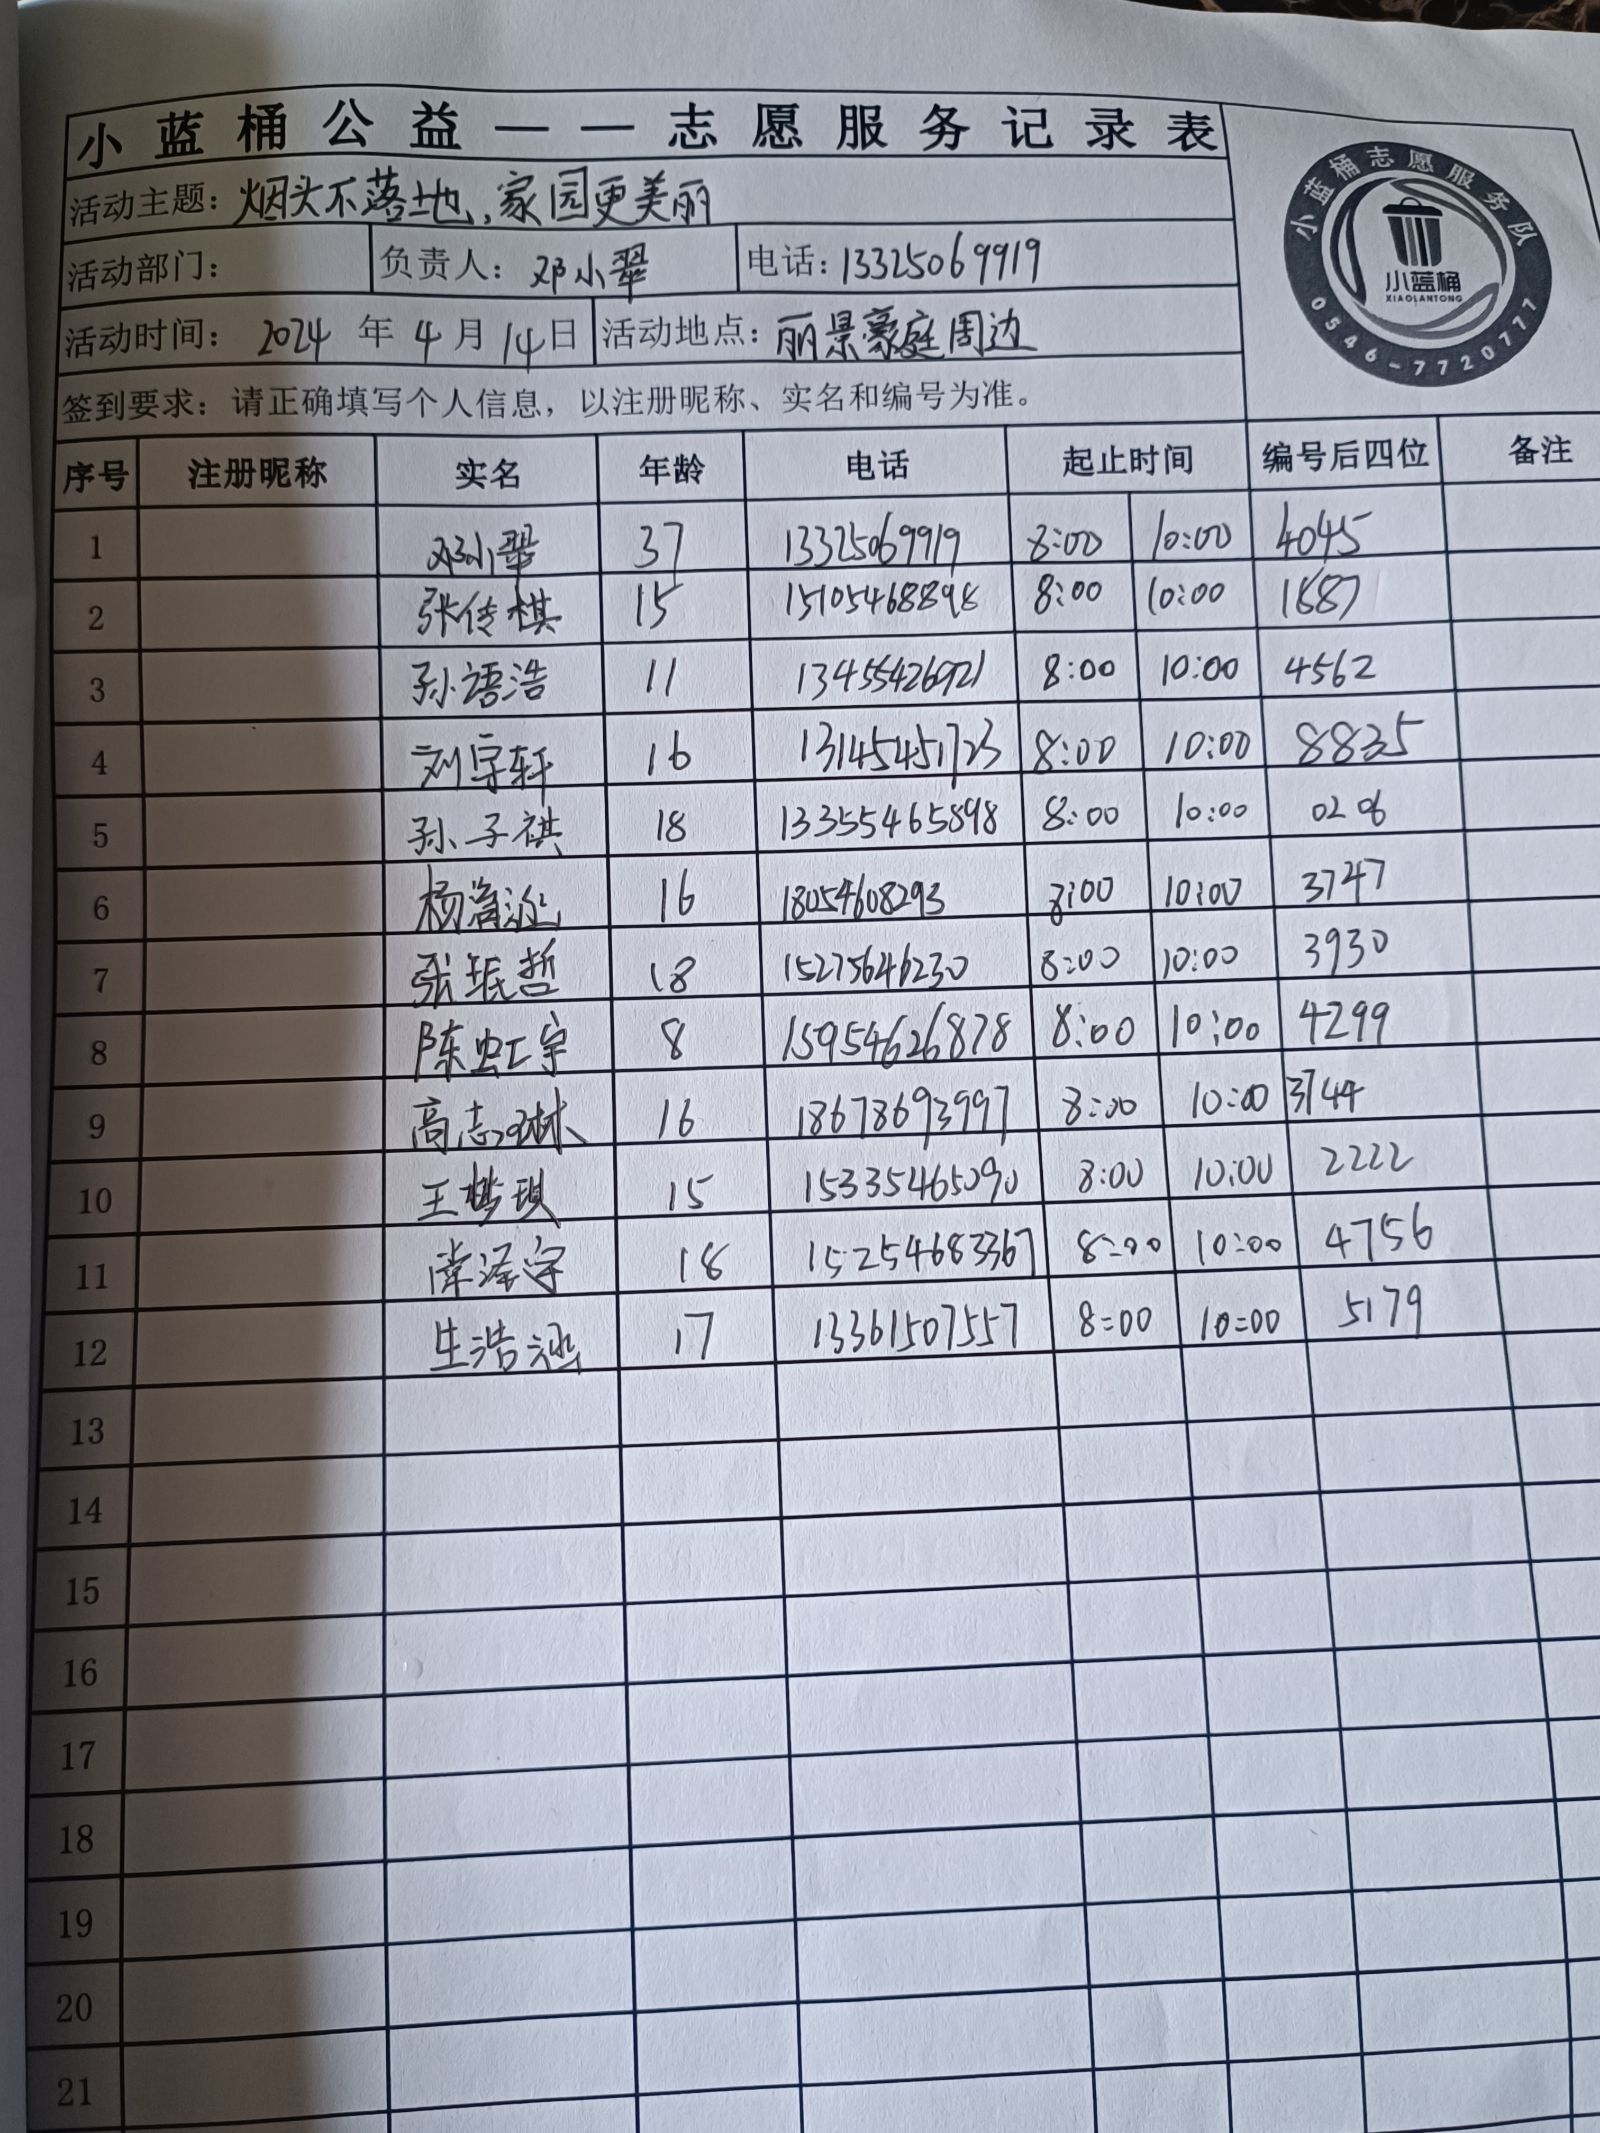 小蓝桶公益——志愿服务记录表
小蓝桶志愿服务队
小蓝桶
XIAOLANTONG
0546-7720777
活动主题：烟头不落地，家园更美丽
活动部门： 负责人：邓小翠 电话：13325069919
活动时间：2024年4月14日 活动地点：丽景豪庭周边
签到要求：请正确填写个人信息，以注册昵称、实名和编号为准。
序号 注册昵称 实名 年龄 电话 起止时间 编号后四位 备注
1 邓小翠 37 13325069919 8:00 10:00 4045
2 张传棋 15 15105468898 8:00 10:00 1887
3 孙语浩 11 13455426921 8:00 10:00 4562
4 刘宇轩 16 13145451723 8:00 10:00 8835
5 孙子祺 18 13355465898 8:00 10:00 0206
6 杨 16 18054608293 8:00 10:00 3747
7 张珉哲 18 15275646230 8:00 10:00 3930
8 陈虹宇 8 15954626878 8:00 10:00 4299
9 高志琳 16 18678693997 8:00 10:00 3744
10 王梦琪 15 15335465090 8:00 10:00 2222
11 泽宇 18 15254683367 8:00 10:00 4756
12 生浩涵 17 13361507557 8:00 10:00 5179
13
14
15
16
17
18
19
20
21